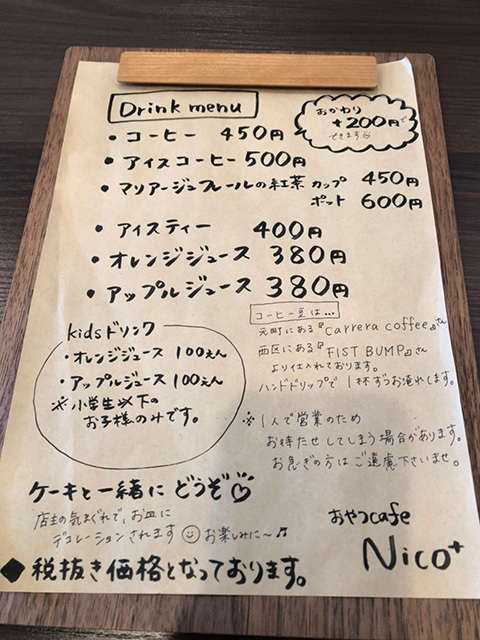 Drink menu
おかわり
+200円で
できます
・コーヒー 450円
・アイスコーヒー 500円
・マリアージュフレールの紅茶 カップ 450円
ポット 600円
・アイスティー 400円
・オレンジジュース 380円
・アップルジュース 380円
kidsドリンク
・オレンジジュース 100えん
・アップルジュース 100えん
※小学生以下の
お子様のみです。
コーヒー豆は…
元町にある『Carrera coffee』さん
西区にある『FIST BUMP』さん
より仕入れております。
ハンドドリップで1杯ずつお淹れします。
※1人で営業のため
お待たせしてしまう場合があります。
お急ぎの方はご遠慮下さいませ。
ケーキと一緒にどうぞ♡
店主の気まぐれで、お皿に
デコレーションされます☺お楽しみに〜♫
おやつcafe
Nico+
◆税抜き価格となっております。